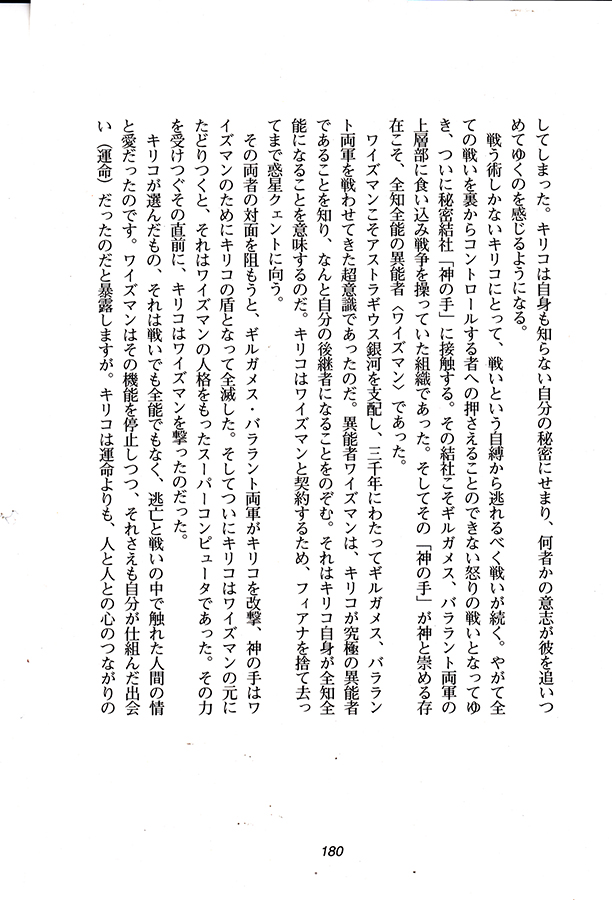 してしまった。キリコは自身も知らない自分の秘密にせまり、何者かの意志が彼を追いつ
めてゆくのを感じるようになる。
　戦う術しかないキリコにとって、戦いという自縛から逃れるべく戦いが続く。やがて全
ての戦いを裏からコントロールする者への押さえることのできない怒りの戦いとなってゆ
き、ついに秘密結社「神の手」に接触する。その結社こそギルガメス、バララント両軍の
上層部に食い込み戦争を操っていた組織であった。そしてその「神の手」が神と崇める存
在こそ、全知全能の異能者〈ワイズマン〉であった。
　ワイズマンこそアストラギウス銀河を支配し、三千年にわたってギルガメス、バララン
ト両軍を戦わせてきた超意識であったのだ。異能者ワイズマンは、キリコが究極の異能者
であることを知り、なんと自分の後継者になることをのぞむ。それはキリコ自身が全知全
能になることを意味するのだ。キリコはワイズマンと契約するため、フィアナを捨て去っ
てまで惑星クェントに向う。
　その両者の対面を阻もうと、ギルガメス・バララント両軍がキリコを攻撃、神の手はワ
イズマンのためにキリコの盾となって全滅した。そしてついにキリコはワイズマンの元に
たどりつくと、それはワイズマンの人格をもったスーパーコンピュータであった。その力
を受けつぐその直前に、キリコはワイズマンを撃ったのだった。
　キリコが選んだもの、それは戦いでも全能でもなく、逃亡と戦いの中で触れた人間の情
と愛だったのです。ワイズマンはその機能を停止しつつ、それさえも自分が仕組んだ出会
い〈運命〉だったのだと暴露しますが。キリコは運命よりも、人と人との心のつながりの
180